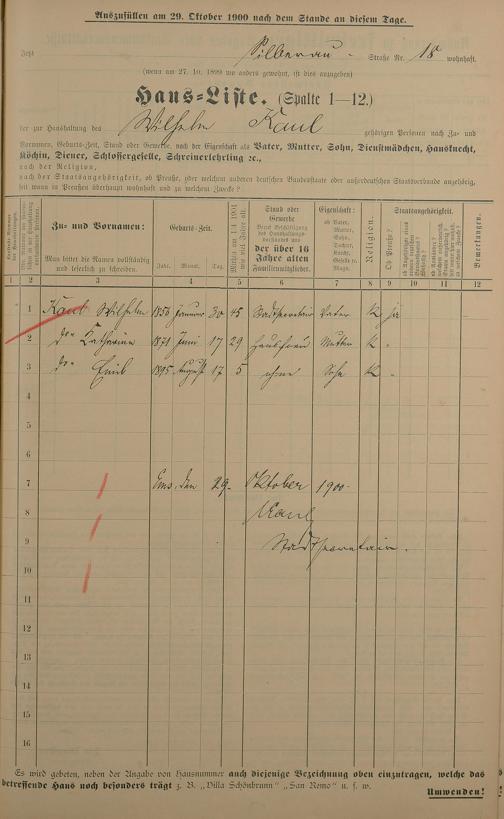 Auszufüllen am 29. Oktober 1900 nach dem Stande an diesem Tage.
Jetzt Silberau. Straße Nr. 18 wohnhaft.
(wenn am 27. 10. 1899 wo anders gewohnt, ist dies anzugeben)
Haus-Liste. (Spalte 1—12.)
der zur Haushaltung des Wilhelm Kaul gehörigen Personen nach Zu- und
Vornamen, Geburts-Zeit, Stand oder Gewerbe, nach der Eigenschaft als Vater, Mutter, Sohn, Dienstmädchen, Hausknecht,
Köchin, Diener, Schlossergeselle, Schreinerlehrling ꝛc.,
nach der Religion,
nach der Staatsangehörigkeit, ob Preuße, oder welchem anderen deutschen Bundesstaate oder außerdeutschen Staatsverbande angehörig,
seit wann in Preußen überhaupt wohnhaft und zu welchem Zwecke?
Zu- und Vornamen:
Man bittet die Namen vollständig und leserlich zu schreiben.
Geburts-Zeit.
Jahr. Monat. Tag.
Mithin am 1.4. 1901 wie viel Jahre alt.
Stand oder Gewerbe
der über 16 Jahre alten Familienmitglieder.
Eigenschaft:
ob Vater, Mutter, Sohn, Tochter, Knecht, Geselle ec. Magd.
Religion.
Staatsangehörigkeit.
Ob Preuße?
Bemerkungen.
1 2 3 4 5 6 7 8 9 10 11 12
1 Kaul Wilhelm 1856 Januar 30 45 Stadtsecretair Vater K ja
2 do Katharina 1871 Juni 17 29 Hausfrau Mutter K "
3 do Emil 1895 August 17 5 ohne Sohn K "
4
5
6
7 Ems, den 29. Oktober 1900.
8 Kaul
9 Stadtsecretair.
10
11
12
13
14
15
16
Es wird gebeten, neben der Angabe von Hausnummer auch diejenige Bezeichnung oben einzutragen, welche das
betreffende Haus noch besonders trägt z. B. „Villa Schönbrunn" „San Remo" u. s. w.
Umwenden!